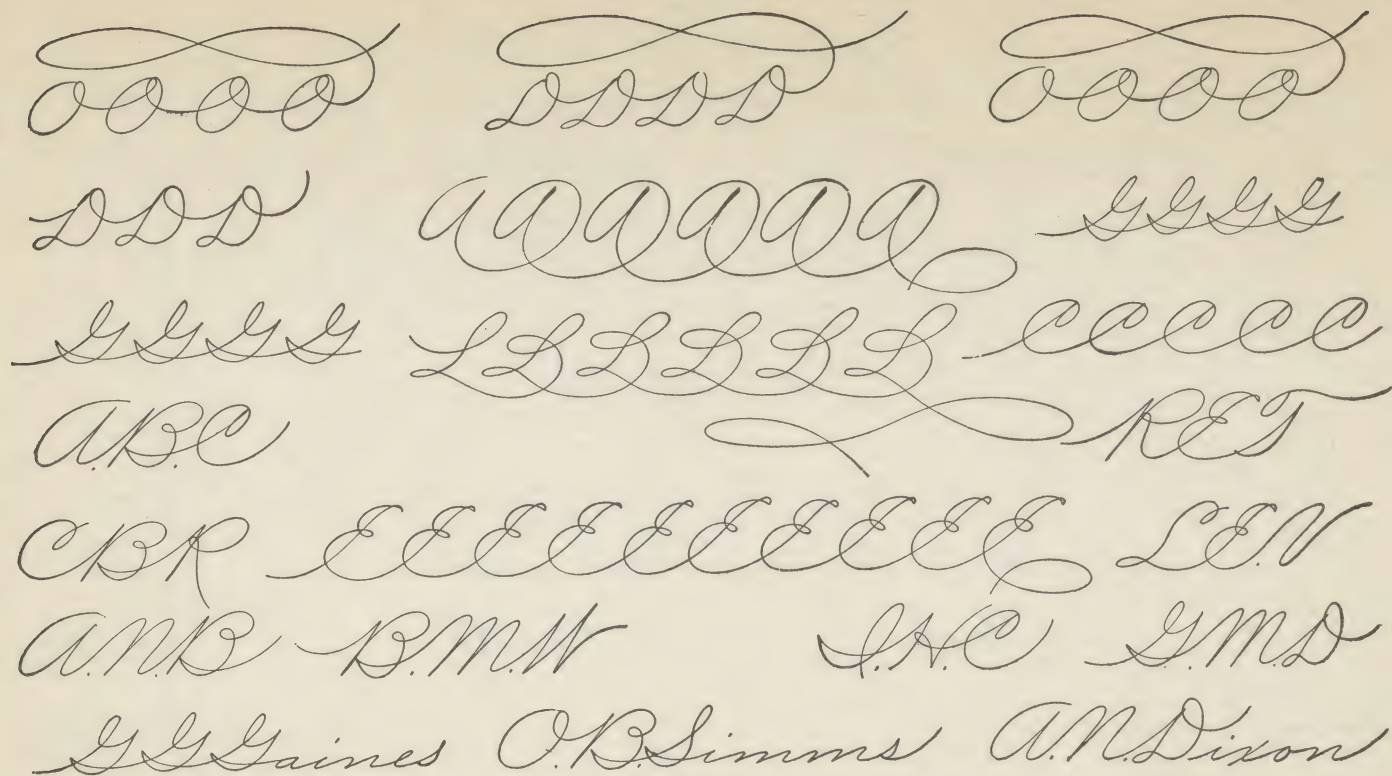 O O O O D D D D O O O O
D D D A A A A A A G G G G
G G G G L L L L L L C C C C C
A.B.C R E T
C B R E E E E E E E E E E L.E.V
A.N.B B.M.W I.H.C G.M.D
G G Gaines O.B.Simms A.N.Dixon